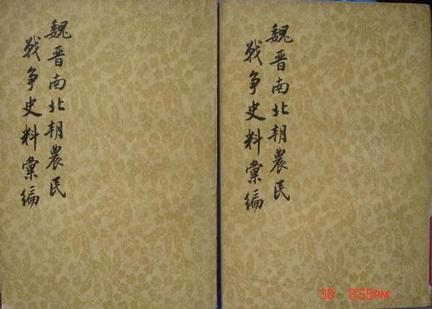 魏晋南北朝農民
战争史料彙编
魏晋南北朝農民
战争史料彙编